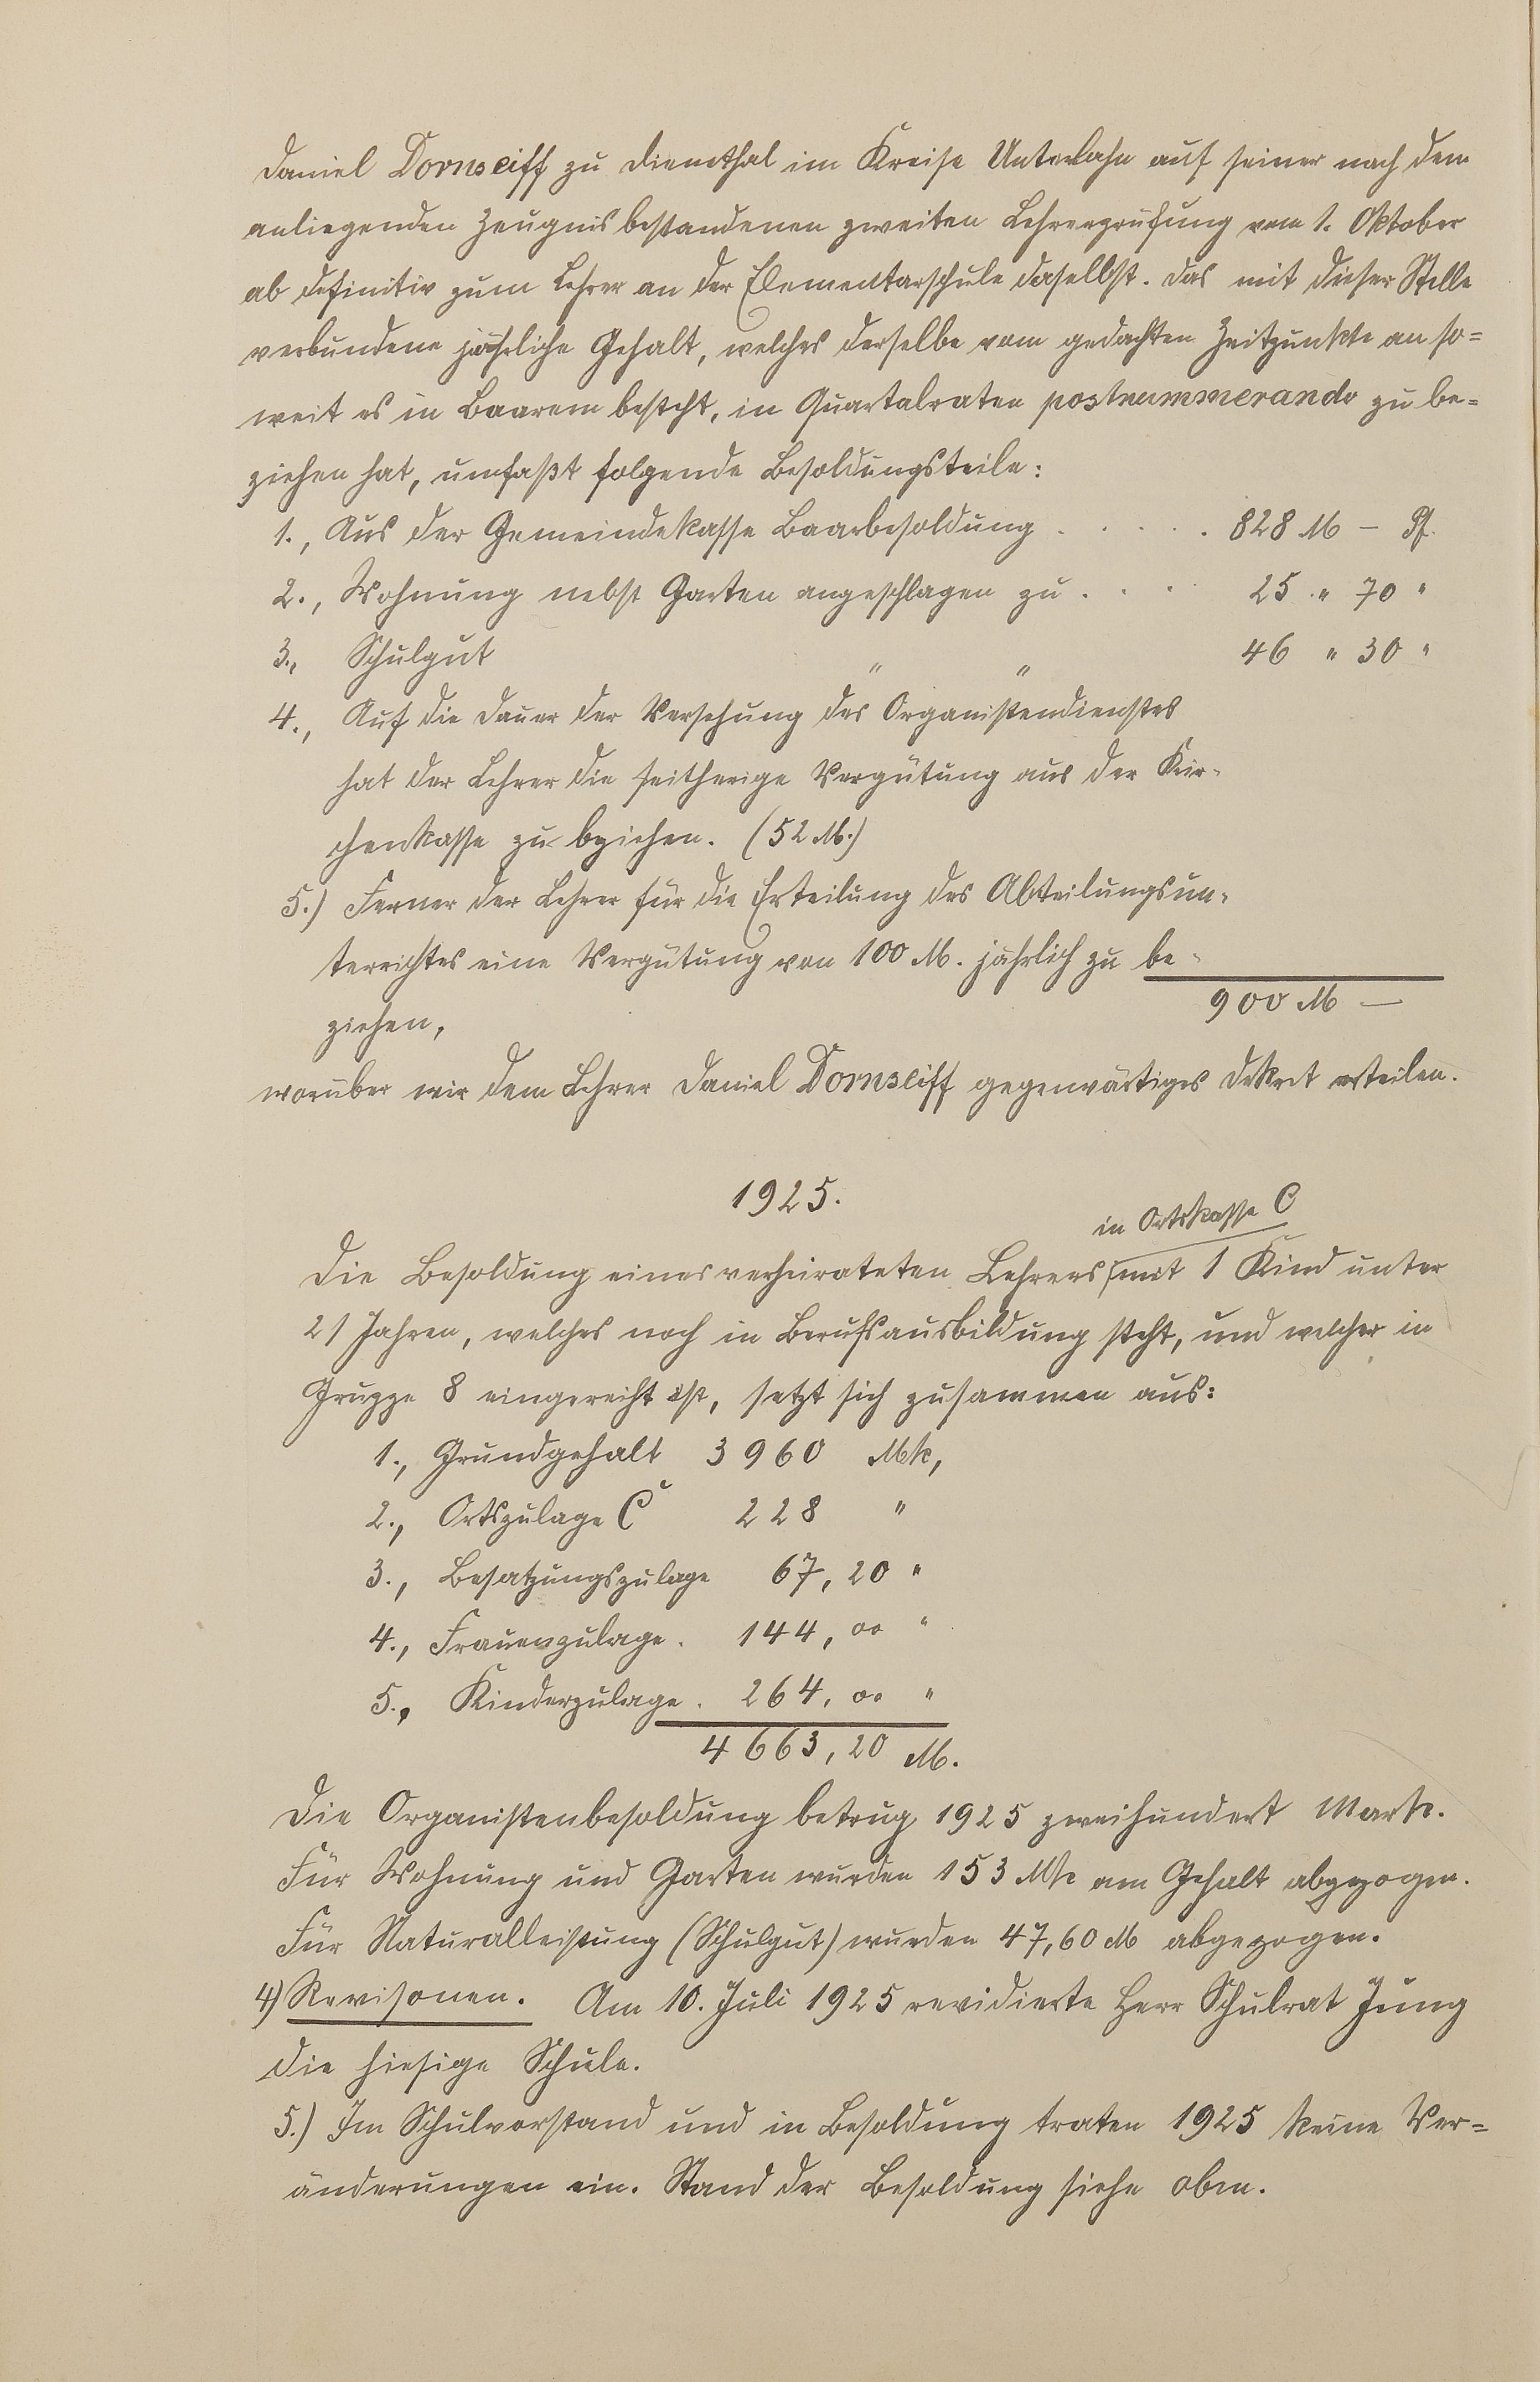 Daniel Dornseiff zu Dienethal im Kreise Unterlahn auf seiner nach dem
anliegenden Zeugnis bestandenen zweiten Lehrerprüfung vom 1. Oktober
ab definitiv zum Lehrer an der Elementarschule daselbst. Das mit dieser Stelle
verbundene jährliche Gehalt, welches derselbe vom gedachten Zeitpunkte an so=
weit es in Baarem besteht, in Quartalraten postnummerando zu be=
ziehen hat, umfaßt folgende Besoldungsteile:
1., Aus der Gemeindekasse Baarbesoldung . . . . . 828 M – Pf.
2., Wohnung nebst Garten angeschlagen zu . . . 25 " 70 "
3., Schulgut " " 46 " 30 "
4., Auf die Dauer der Versehung des Organistendienstes
hat der Lehrer die seitherige Vergütung aus der Kir-
chenkasse zu beziehen. (52 M.)
5.) Ferner der Lehrer für die Erteilung des Abteilungsun-
terrichtes eine Vergütung von 100 M. jährlich zu be-
900 M —
ziehen,
worüber wir dem Lehrer Daniel Dornseiff gegenwärtiges Dekret erteilen.
1925.
in Ortskasse C
Die Besoldung eines verheirateten Lehrers mit 1 Kind unter
21 Jahren, welches noch in Berufsausbildung steht, und welcher in
Gruppe 8 eingereiht ist, setzt sich zusammen aus:
1., Grundgehalt 3960 Mk,
2., Ortszulage C 228 "
3., Besatzungszulage 67,20 "
4., Frauenzulage. 144,00 "
5., Kinderzulage. 264,00 "
4663,20 M.
Die Organistenbesoldung betrug 1925 zweihundert Mark.
Für Wohnung und Garten wurden 153 Mk am Gehalt abgezogen.
Für Naturalleistung (Schulgut) wurden 47,60 M abgezogen.
4) Revisonen. Am 10. Juli 1925 revidierte Herr Schulrat Jung
die hiesige Schule.
5.) Im Schulvorstand und in Besoldung traten 1925 keine Ver=
änderungen ein. Stand der Besoldung siehe oben.